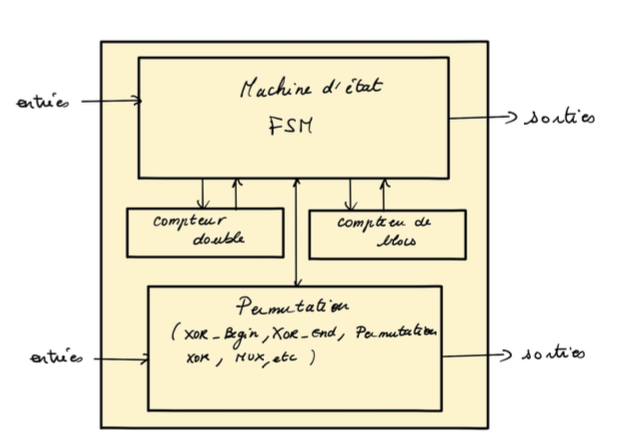 Machine d'état
entrées
FSM
sorties
compteur
double
compteu de
blocs
Permutation
(XOR_Begin, XOR_end, Permutation
XOR, MUX, etc )
entrées
sorties